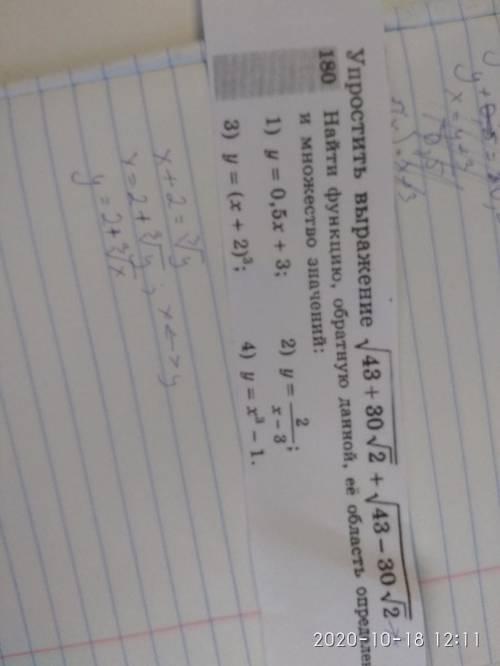 Упростить выражение √43 + 30√2 + √43 − 30√2
180 Найти функцию, обратную данной, её область определе
и множество значений:
1) y = 0,5x + 3; 2) y = 2/(x − 3);
3) y = (x + 2)³; 4) y = x³ − 1.
x + 2 = ∛y
x = 2 + ∛y ; x <-> y
y = 2 + ∛x
2020-10-18 12:11